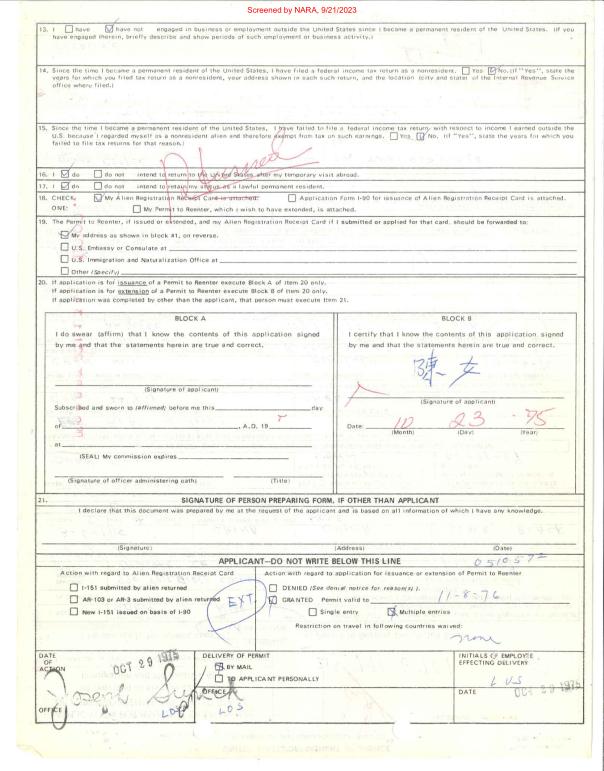 Screened by NARA, 9/21/2023
13. I have have not engaged in business or employment outside the United States since I became a permanent resident of the United States. (If you
have engaged therein, briefly describe and show periods of such employment or business activity.)
14. Since the time I became a permanent resident of the United States, I have filed a federal income tax return as a nonresident. Yes No. (If "Yes", state the
years for which you filed tax return as a nonresident, your address shown in each such return, and the location (city and state) of the Internal Revenue Service
office where filed.)
15. Since the time I became a permanent resident of the United States, I have failed to file a federal income tax return with respect to income I earned outside the
U.S. because I regarded myself as a nonresident alien and therefore exempt from tax on such earnings. Yes No, (If "Yes", state the years for which you
failed to file tax returns for that reason.)
Returned
16. I do do not intend to return to the United States after my temporary visit abroad.
17. I do do not intend to retain my status as a lawful permanent resident.
18. CHECK My Alien Registration Receipt Card is attached. Application Form I-90 for issuance of Alien Registration Receipt Card is attached.
ONE: My Permit to Reenter, which I wish to have extended, is attached.
19. The Permit to Reenter, if issued or extended, and my Alien Registration Receipt Card if I submitted or applied for that card, should be forwarded to:
My address as shown in block #1, on reverse.
U.S. Embassy or Consulate at
U.S. Immigration and Naturalization Office at
Other (Specify)
20. If application is for issuance of a Permit to Reenter execute Block A of Item 20 only.
If application is for extension of a Permit to Reenter execute Block B of Item 20 only.
If application was completed by other than the applicant, that person must execute Item 21.
BLOCK A
I do swear (affirm) that I know the contents of this application signed
by me and that the statements herein are true and correct.
(Signature of applicant)
Subscribed and sworn to (affirmed) before me this day
of , A.D. 19
at
(SEAL) My commission expires
(Signature of officer administering oath) (Title)
BLOCK B
I certify that I know the contents of this application signed
by me and that the statements herein are true and correct.
陳一女
(Signature of applicant)
Date: 10 23 -75
(Month) (Day) (Year)
21. SIGNATURE OF PERSON PREPARING FORM, IF OTHER THAN APPLICANT
I declare that this document was prepared by me at the request of the applicant and is based on all information of which I have any knowledge.
(Signature) (Address) (Date)
APPLICANT—DO NOT WRITE BELOW THIS LINE
0510572
Action with regard to Alien Registration Receipt Card
I-151 submitted by alien returned
AR-103 or AR-3 submitted by alien returned
New I-151 issued on basis of I-90
EXT.
Action with regard to application for issuance or extension of Permit to Reenter
DENIED (See denial notice for reason(s).)
GRANTED Permit valid to 11-8-76
Single entry Multiple entries
Restriction on travel in following countries waived:
none
DATE OF ACTION OCT 29 1975
OFFICE LOS
DELIVERY OF PERMIT
BY MAIL
TO APPLICANT PERSONALLY
OFFICE
LOS
INITIALS OF EMPLOYEE
EFFECTING DELIVERY
LVS
DATE OCT 29 1975